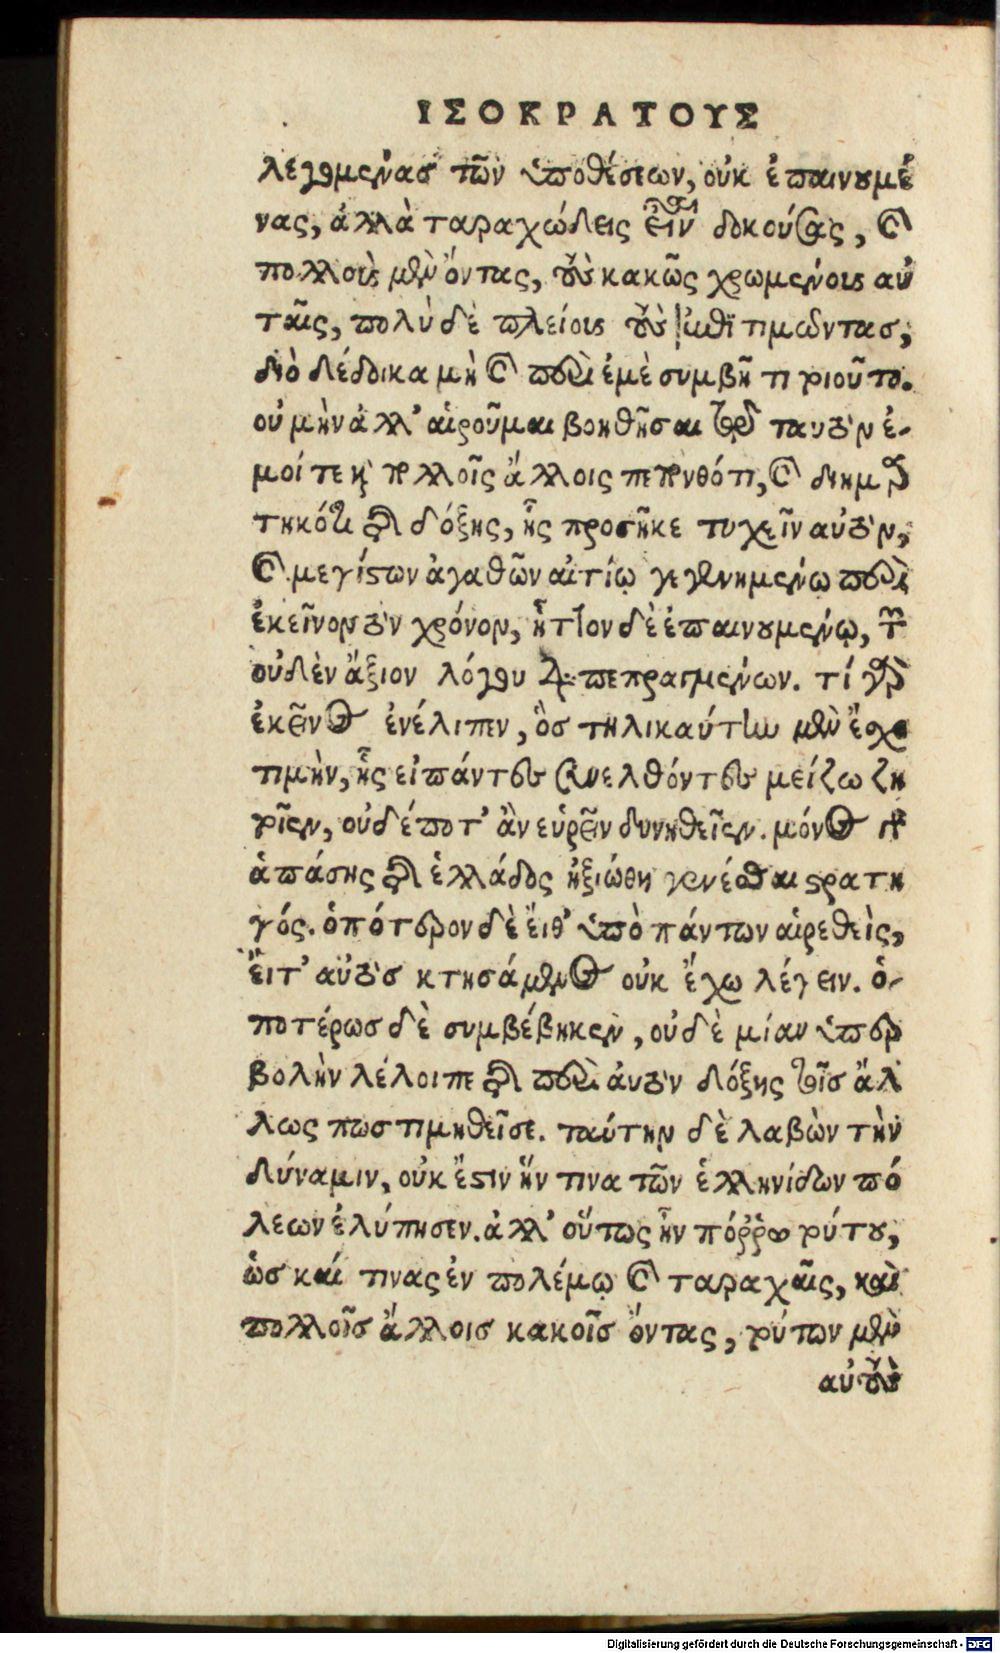 ΙΣΟΚΡΑΤΟΥΣ
λεγομένας τῶν ὑποθέσεων, οὐκ ἐπαινουμέ
νας, ἀλλὰ ταραχώδεις εἶναι δοκούσας, καὶ
πολλοὺς μὲν ὄντας, τοὺς κακῶς χρωμένους αὐ
ταῖς, πολὺ δὲ πλείους τοὺς ἐπιτιμῶντας,
διὸ δέδοικα μὴ καὶ περὶ ἐμὲ συμβῇ τι τοιοῦτο.
οὐ μὴν ἀλλ' αἱροῦμαι βοηθῆσαι τῷ ταυτὸν ἐ-
μοί τε καὶ πολλοῖς ἄλλοις πεπονθότι, καὶ διημαρ
τηκότι τῆς δόξης, ἧς προσῆκε τυχεῖν αὐτὸν,
καὶ μεγίστων ἀγαθῶν αἰτίῳ γεγενημένῳ περὶ
ἐκεῖνον τὸν χρόνον, ἧττον δὲ ἐπαινουμένῳ, τῶν
οὐδὲν ἄξιον λόγου διαπεπραγμένων. τί γὰρ
ἐκεῖνος ἐνέλιπεν, ὃς τηλικαύτην μὲν ἔσχε
τιμὴν, ἧς εἰ πάντες συνελθόντες μείζω ζη
τοῖεν, οὐδέποτ' ἂν εὑρεῖν δυνηθεῖεν. μόνος γὰρ
ἁπάσης τῆς ἑλλάδος ἠξιώθη γενέσθαι στρατη
γός. ὁπότερον δὲ εἴθ' ὑπὸ πάντων αἱρεθεὶς,
εἴτ' αὐτὸς κτησάμενος οὐκ ἔχω λέγειν. ὁ-
ποτέρως δὲ συμβέβηκεν, οὐδὲ μίαν ὑπερ
βολὴν λέλοιπε τῆς περὶ αὑτὸν δόξης τοῖς ἄλ
λως πως τιμηθεῖσι. ταύτην δὲ λαβὼν τὴν
δύναμιν, οὐκ ἔστιν ἥν τινα τῶν ἑλληνίδων πό
λεων ἐλύπησεν. ἀλλ' οὕτως ἦν πόρρω τούτου,
ὡς καί τινας ἐν πολέμῳ καὶ ταραχαῖς, καὶ
πολλοῖς ἄλλοις κακοῖς ὄντας, τούτων μὲν
αὐτοὺς
Digitalisierung gefördert durch die Deutsche Forschungsgemeinschaft - DFG